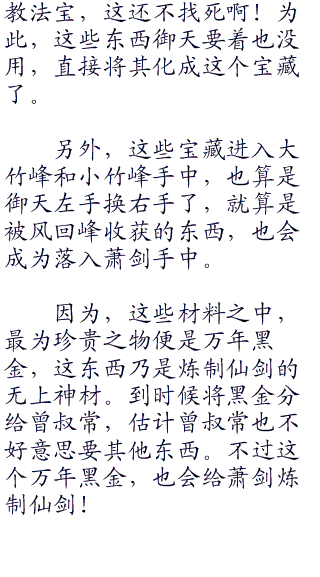 教法宝，这还不找死啊！为
此，这些东西御天要着也没
用，直接将其化成这个宝藏
了。
另外，这些宝藏进入大
竹峰和小竹峰手中，也算是
御天左手换右手了，就算是
被风回峰收获的东西，也会
成为落入萧剑手中。
因为，这些材料之中，
最为珍贵之物便是万年黑
金，这东西乃是炼制仙剑的
无上神材。到时候将黑金分
给曾叔常，估计曾叔常也不
好意思要其他东西。不过这
个万年黑金，也会给萧剑炼
制仙剑！